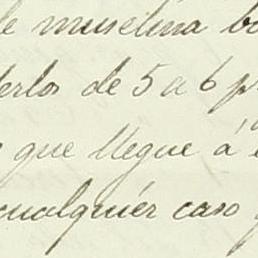 de muselina bo
derlos de 5 a 6 p
que llegue á
cualquiér caso